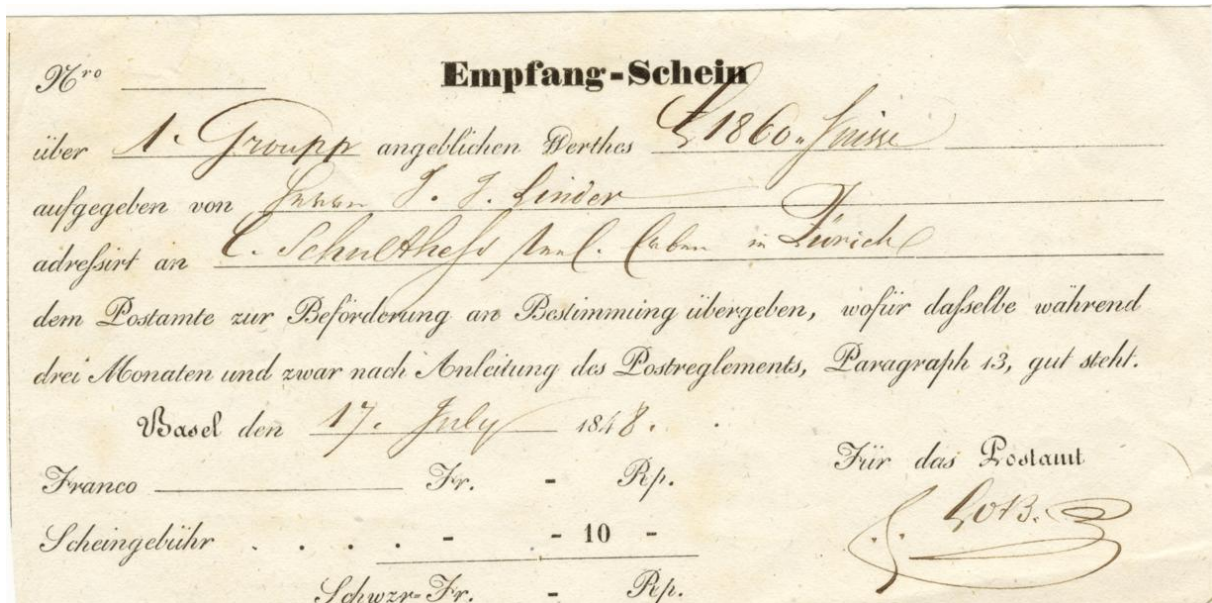 Nro Empfang-Schein
über 1. Groupp angeblichen Werthes 1860
aufgegeben von Herrn J. J. Linder
adreſsirt an C. Schultheſs in Zürich
dem Postamte zur Beförderung an Bestimmung übergeben, wofür daſselbe während
drei Monaten und zwar nach Anleitung des Postreglements, Paragraph 13, gut steht.
Basel den 17. July 1848.
Für das Postamt
Franco Fr. - Rp.
Scheingebühr . . . . - - 10 -
Schwzr-Fr. - Rp.